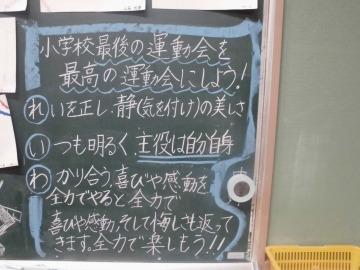 小学校最後の運動会を
最高の運動会にしよう!
れいを正し、静(気を付け)の美しさ
いつも明るく 主役は自分自身
わかり合う喜びや感動を
全力でやると全力で
喜びや感動、そして悔しさも返って
きます。全力で楽しもう!!